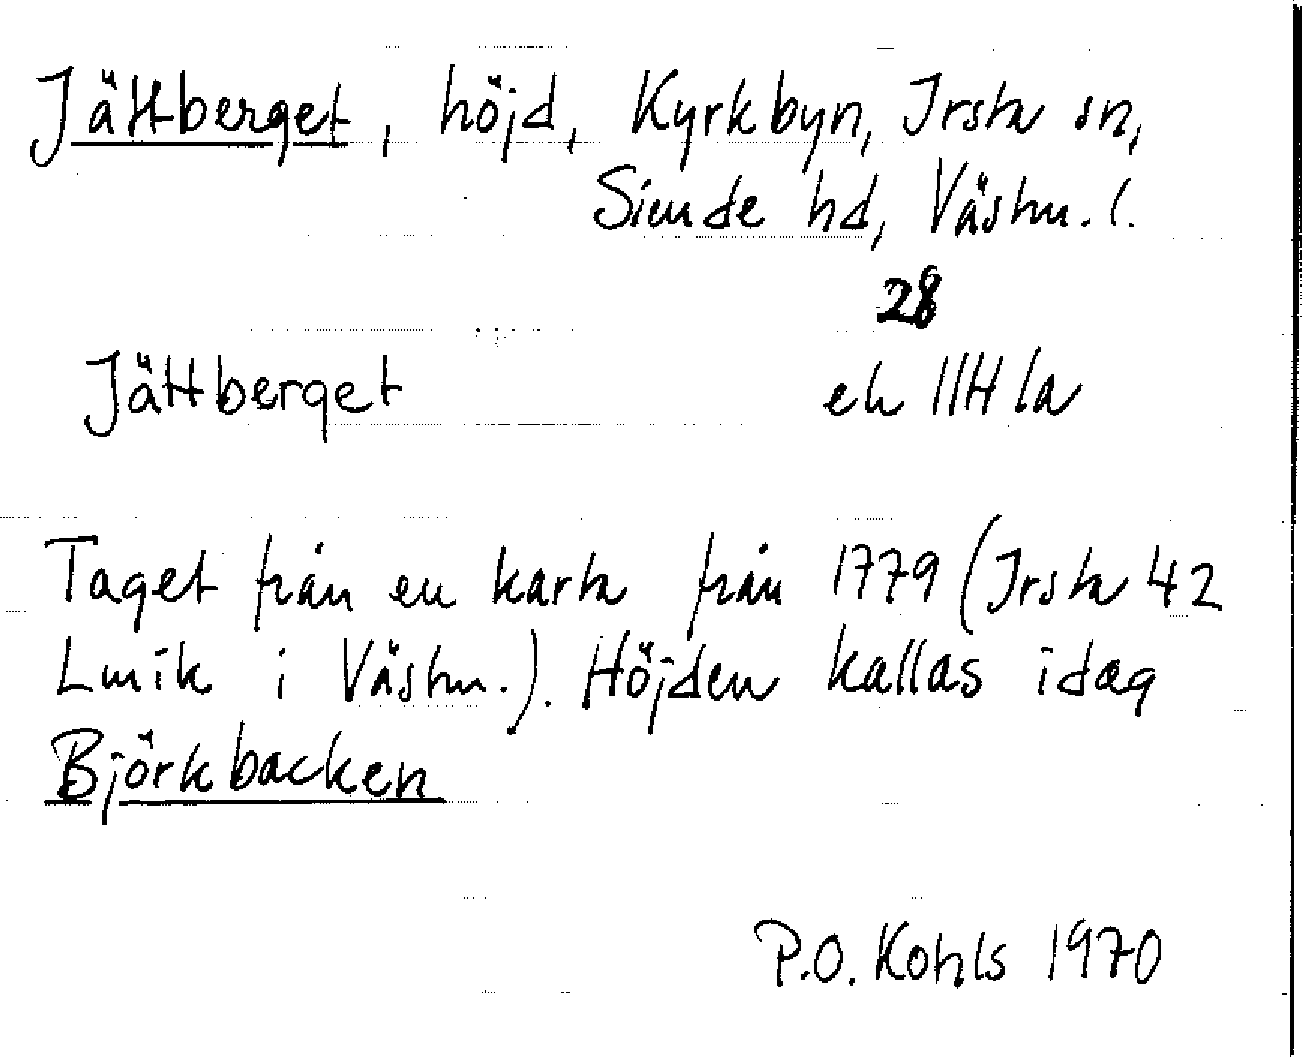 Jättberget, höjd, Kyrkbyn, Irsta sn,
Siende hd, Västm. l.
28
Jättberget ek 11H 1a
Taget från en karta från 1779 (Irsta 42
Lmik i Västm.). Höjden kallas idag
Björkbacken
P.O. Kohls 1970